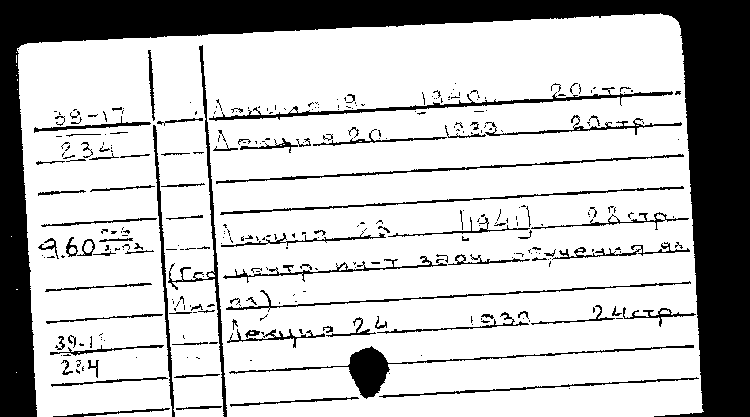 39-17 Лекция 19. 1940. 20 стр.
234 Лекция 20 1939. 20 стр.
960 Лекция 23. [1941]. 28 стр.
(Гос центр. ин-т заоч. обучения яз.
Лекция 24. 1939. 24 стр.
39-17
234